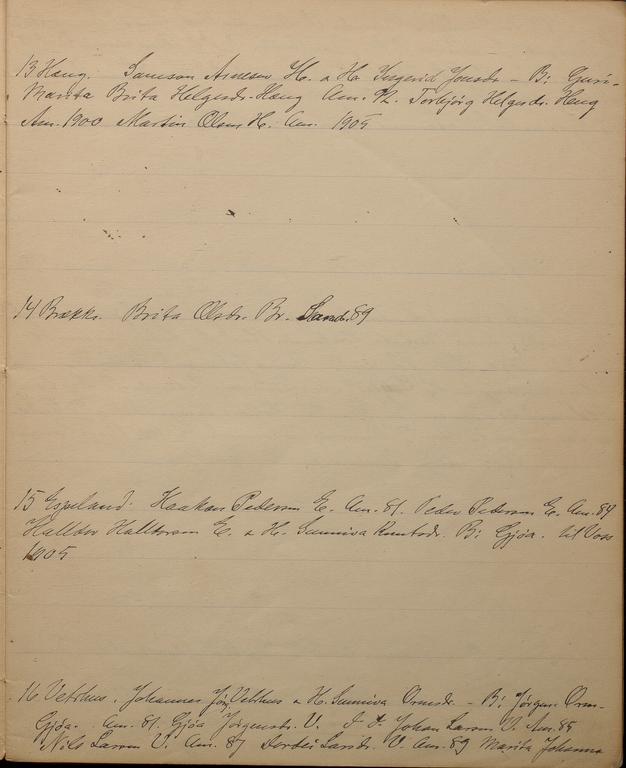 13 Hæng. Samson Arnesen H. & H. Ingerid Jonsdr - B: Guri-
Marita Brita Helgesdr. Hæng Am. Torbjørg Helgesdr. Hæng
Am. 1900 Martin Olsen H. Am. 1905
14 Brække. Brita Olsdr. Br. 89
15 Espeland. Haakon Pederson E. Am. 81. Peder Pederson E. Am. 84
Halltor Halltorson E. & H. Sunniva Knutsdr. B: Gjöa. til Voss
1905
16 Vetrhus. Johannes Jör. Vetrhus & H. Sunniva Ormsdr. - B: Jörgen Orm-
Gjöa. Am. 81. Gjöa Jörgensdr. V. Johan Larson V. Am. 85
Nils Larson V. Am. 87 Larsdr. V. Am. 89 Marita Johanna